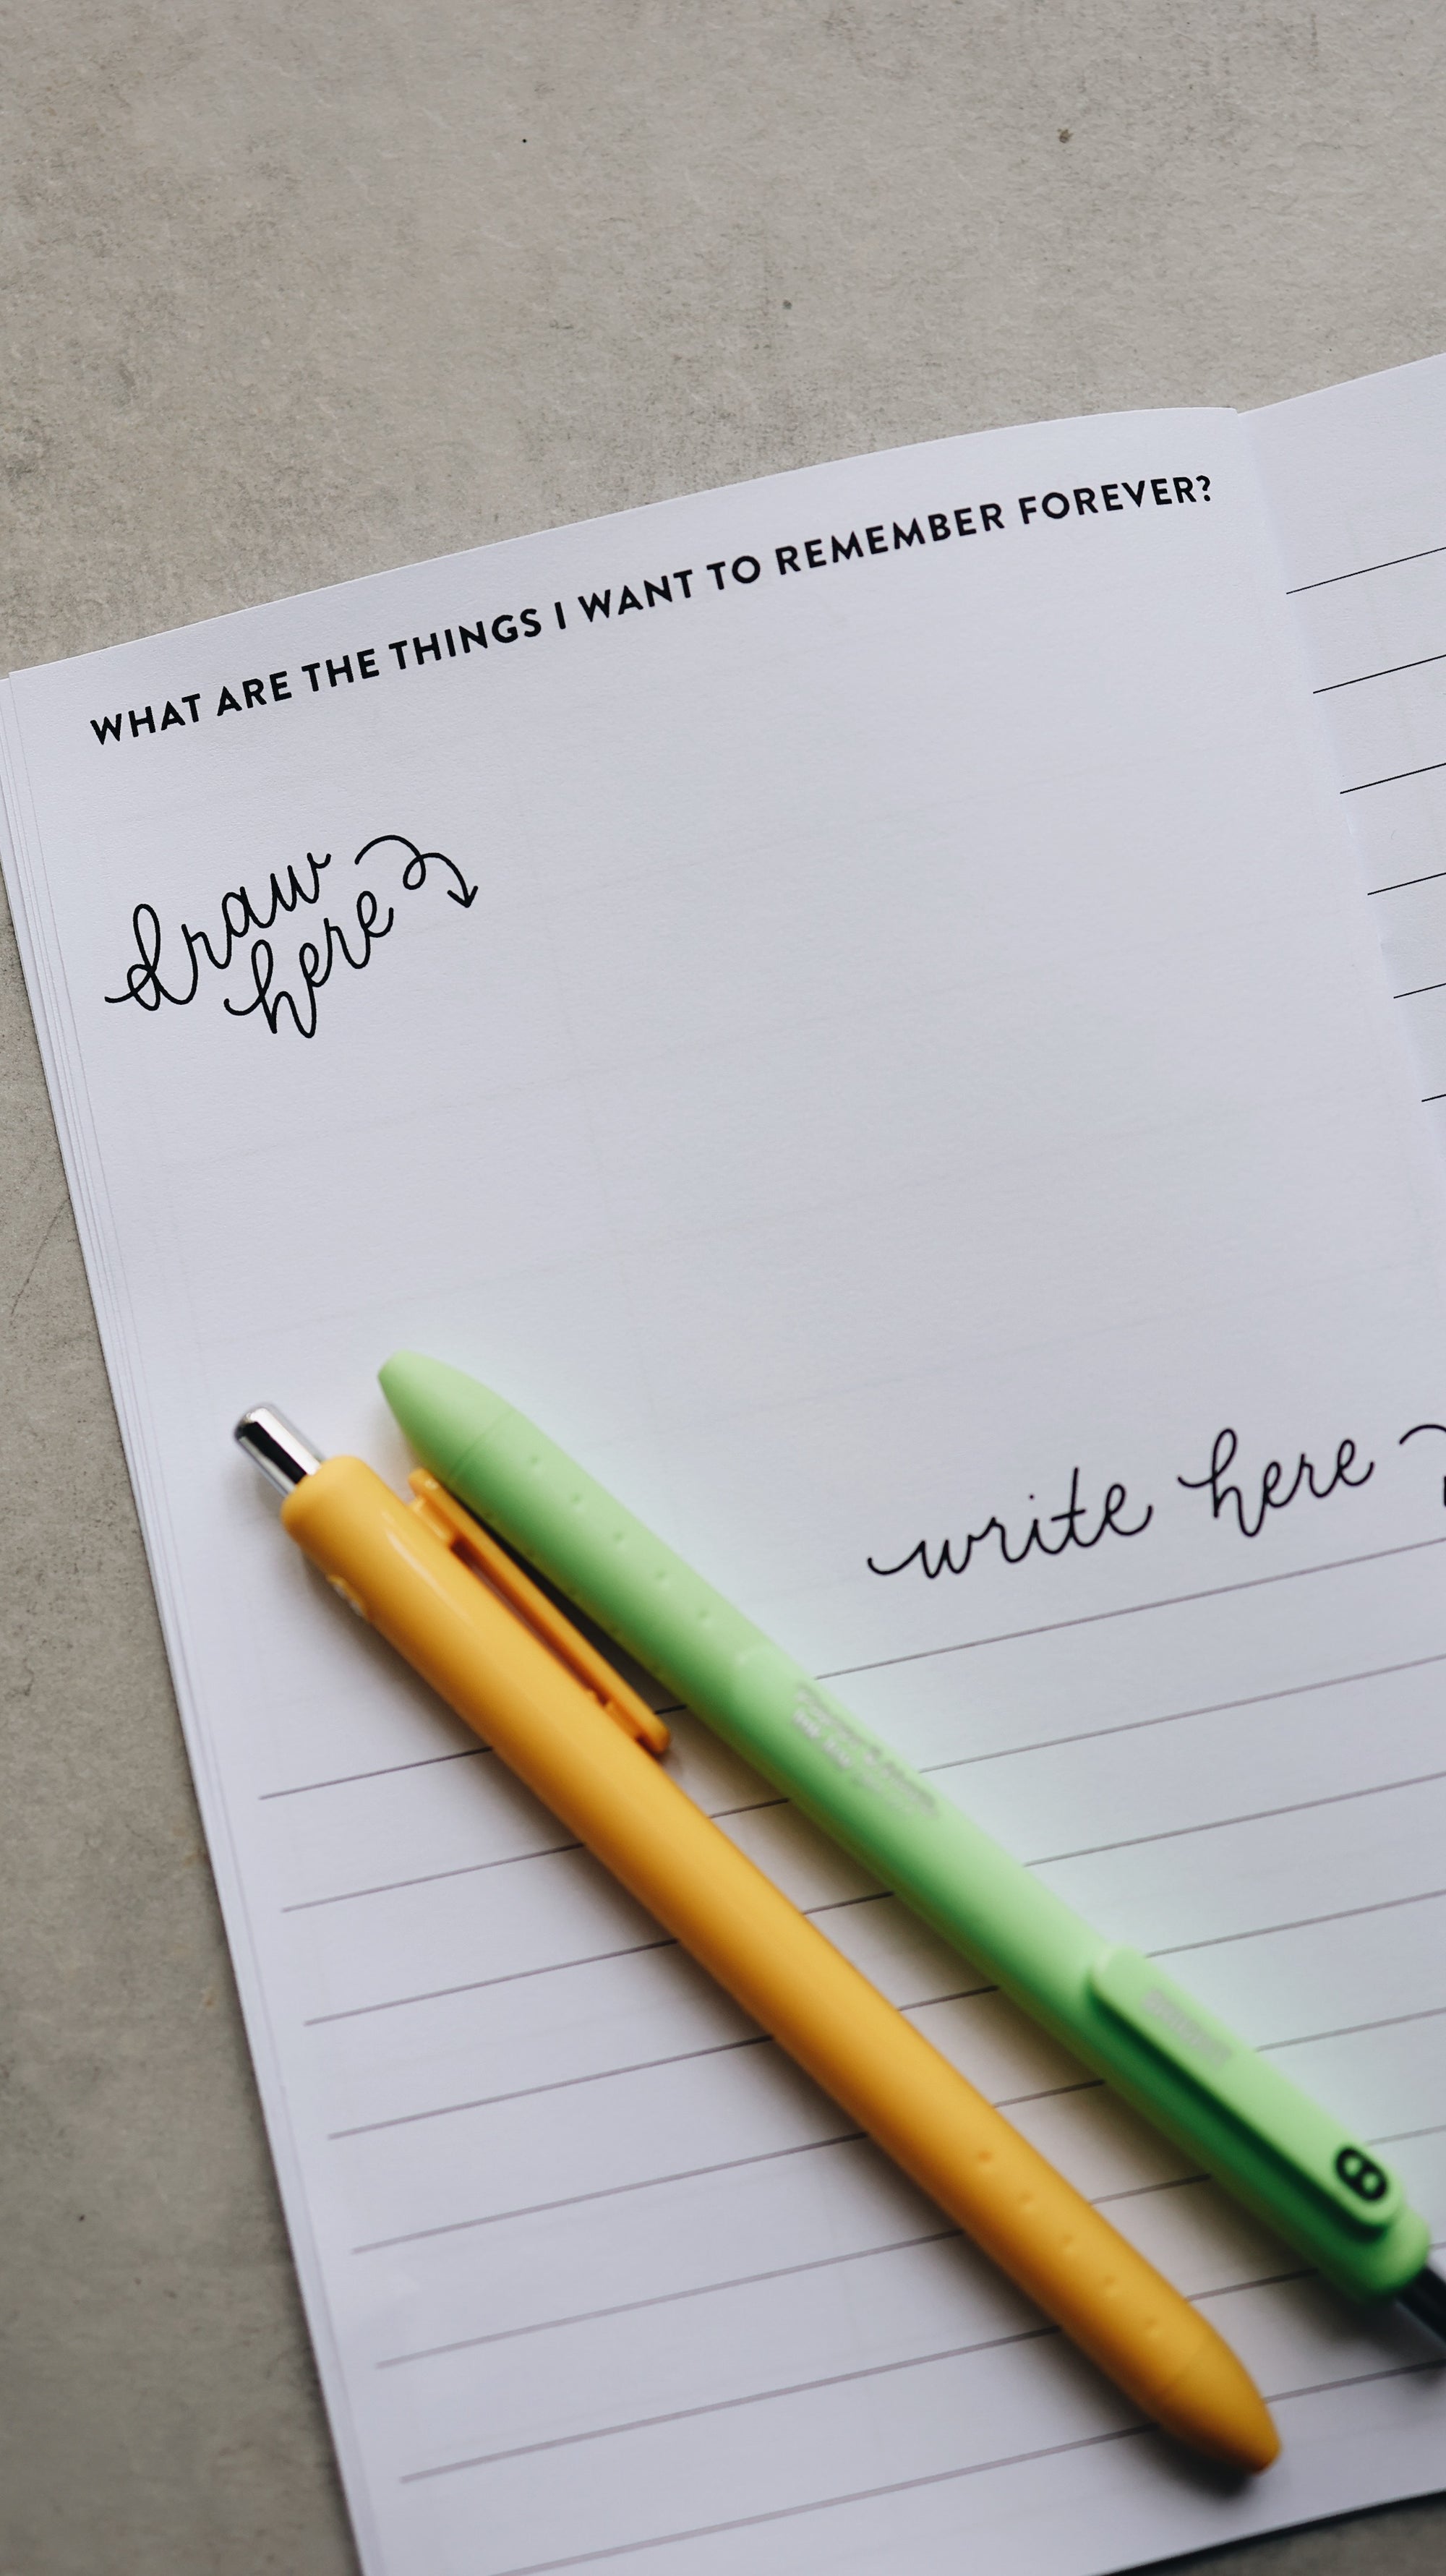 WHAT ARE THE THINGS I WANT TO REMEMBER FOREVER?
draw
here
write here
8